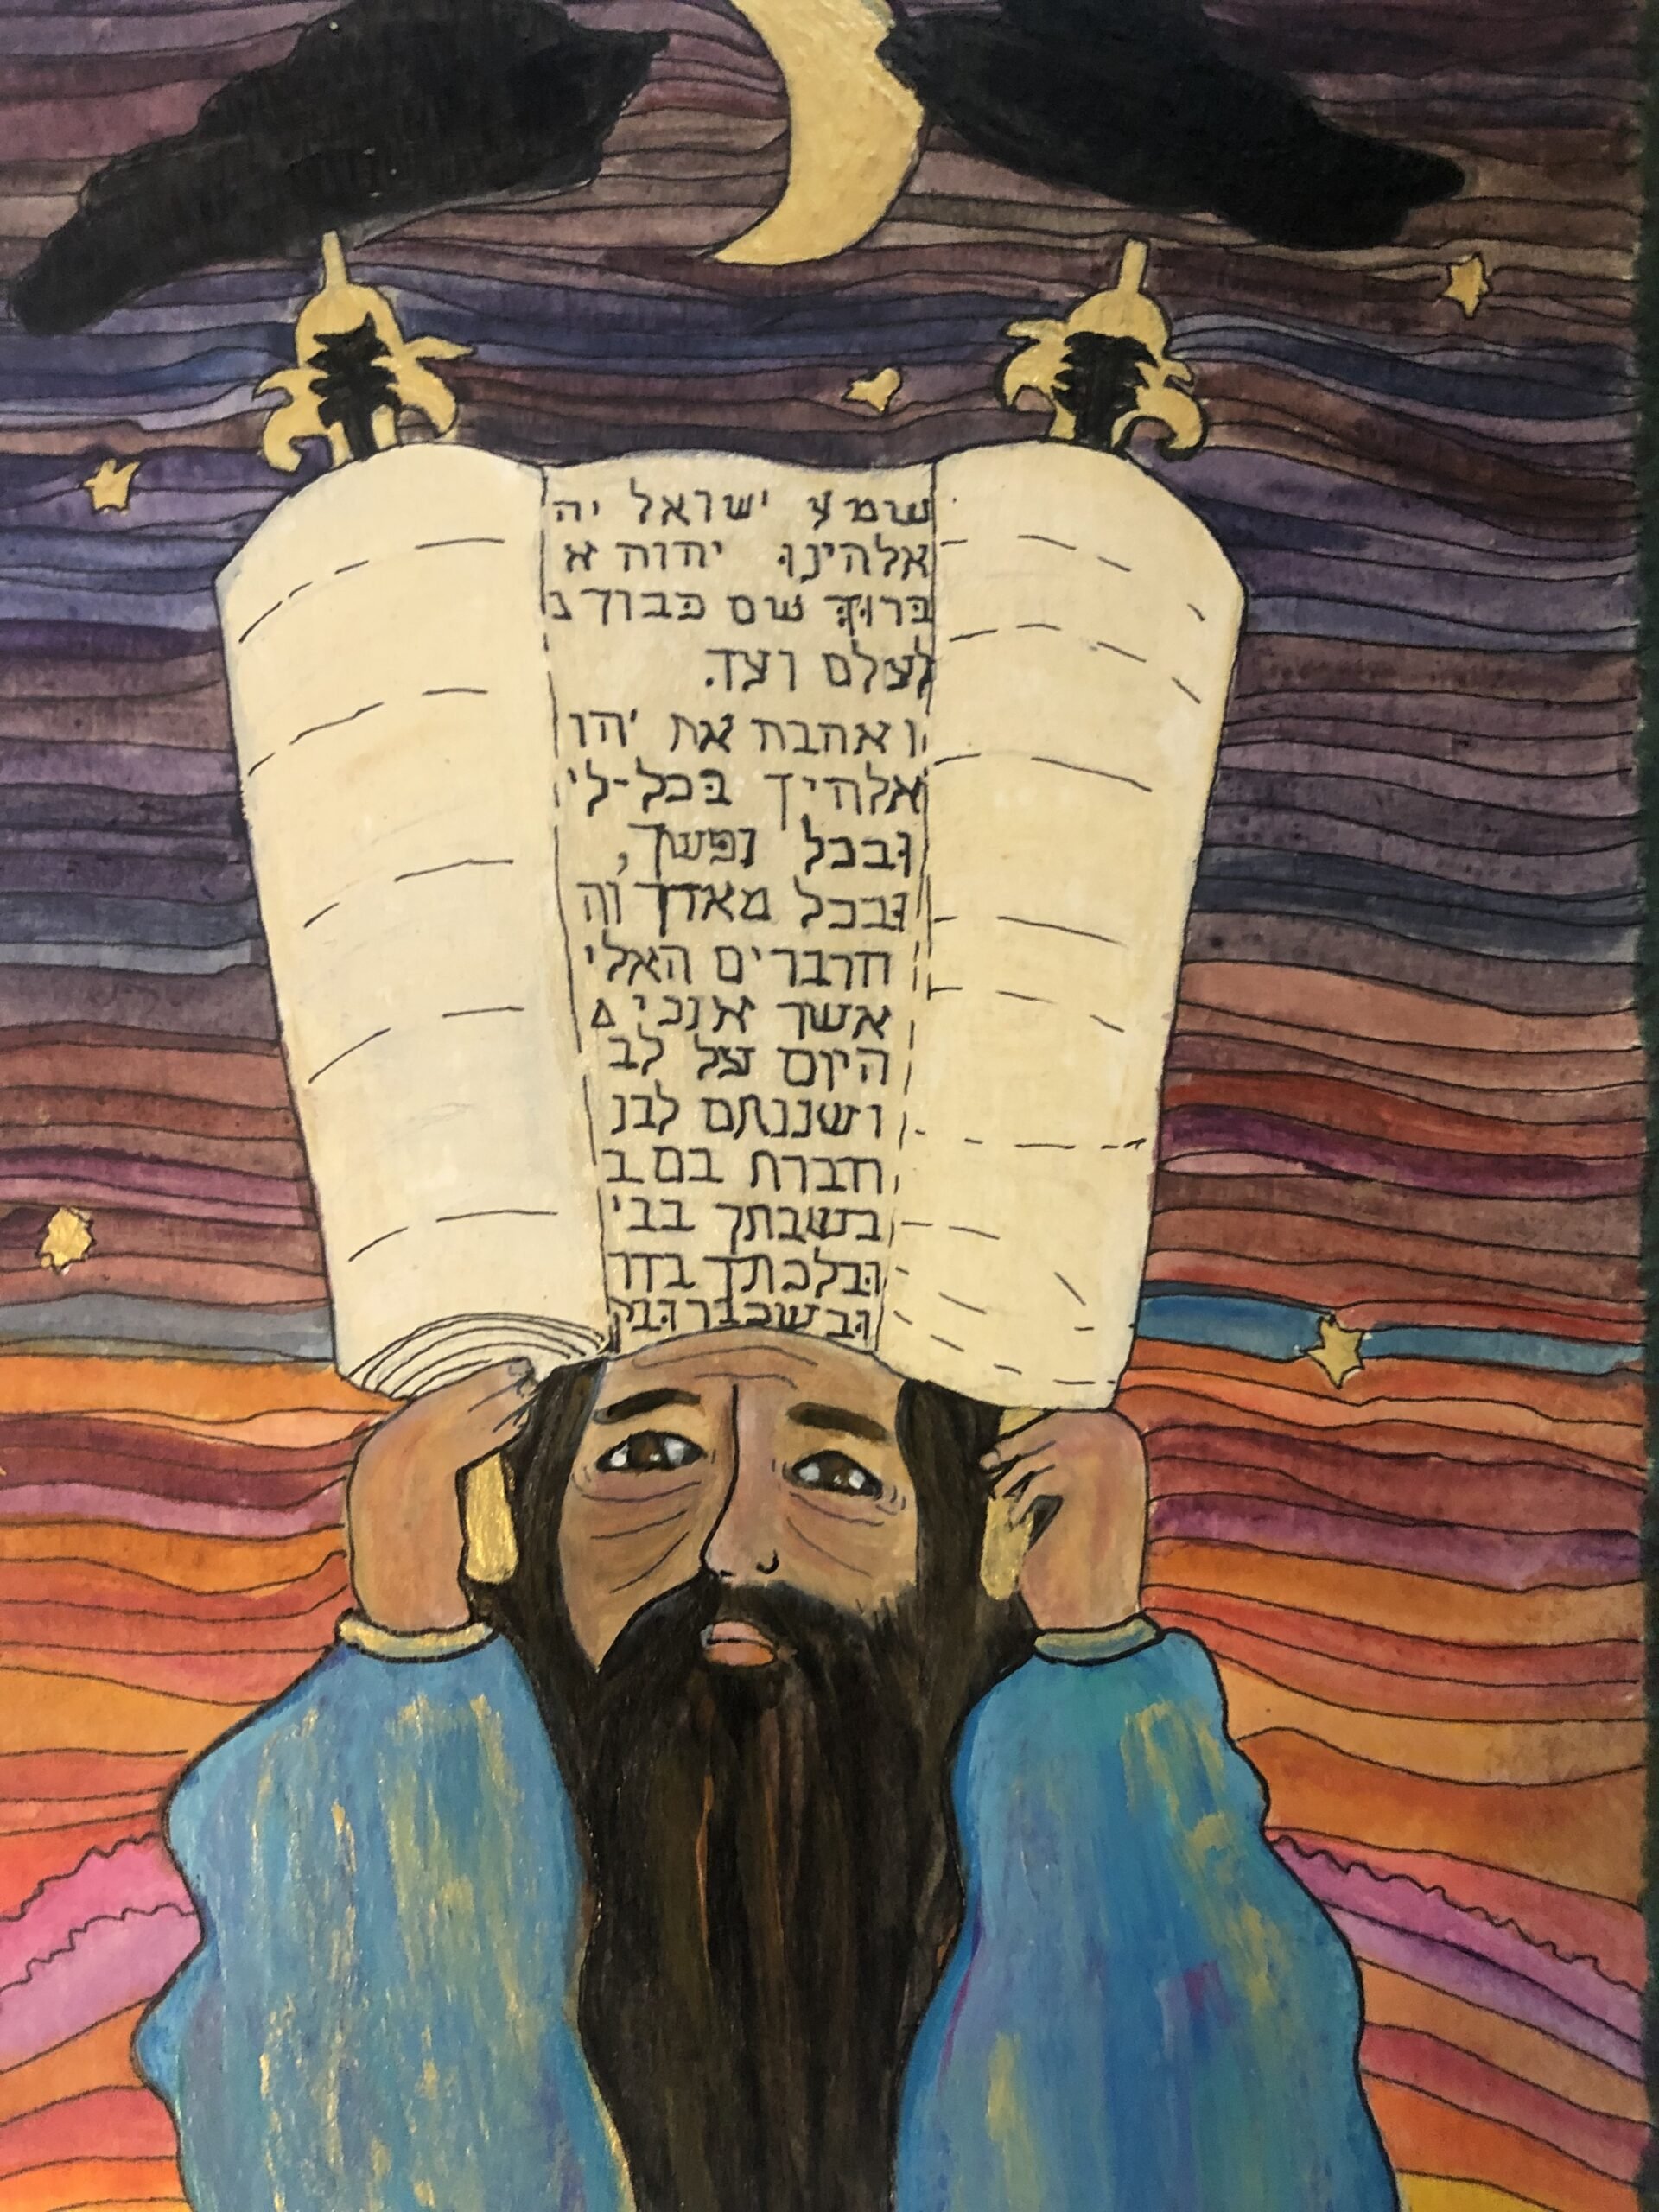 שמע ישראל יה
אלהינוּ יהוה א
בּרוּךּ שם כּבוד נ
לעלם ועד.
ואהבת את יהו
אלהיך בּכל-לי
וּבכל נפשך,
וּבכל מאדך וה
חדברים האלי
אשר אנכי
היום על לב
ושננתם לבנ
ודברת בם ב
בשבתך בבי
וּבלכתך בדר
וּבשכבך וּבק